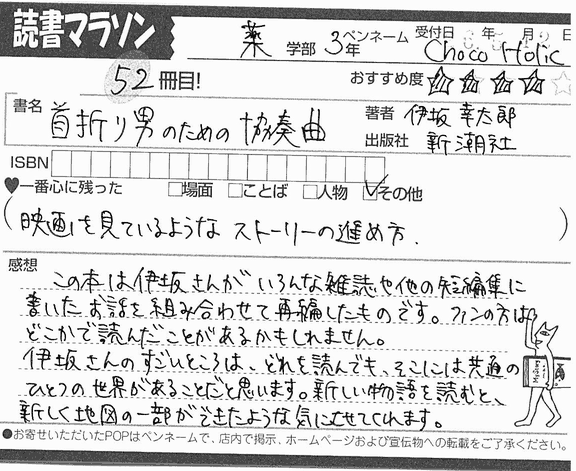 読書マラソン
薬 学部 3年 ペンネーム 受付日 年 月 日
Choco Holic
52冊目! おすすめ度 ★★★★☆
書名 首折り男のための協奏曲
著者 伊坂 幸太郎
出版社 新潮社
ISBN
♥一番心に残った □場面 □ことば □人物 ☑その他
(映画を見ているような ストーリーの進め方.)
感想
この本は伊坂さんがいろんな雑誌や他の短編集に
書いたお話を組み合わせて再編したものです。ファンの方は
どこかで読んだことがあるかもしれません。
伊坂さんのすごいところは、どれを読んでも、そこには共通の
ひとつの世界があることだと思います。新しい物語を読むと、
新しく地図の一部ができたような気にさせてくれます。
●お寄せいただいたPOPはペンネームで、店内で掲示、ホームページおよび宣伝物への転載をご了承ください。